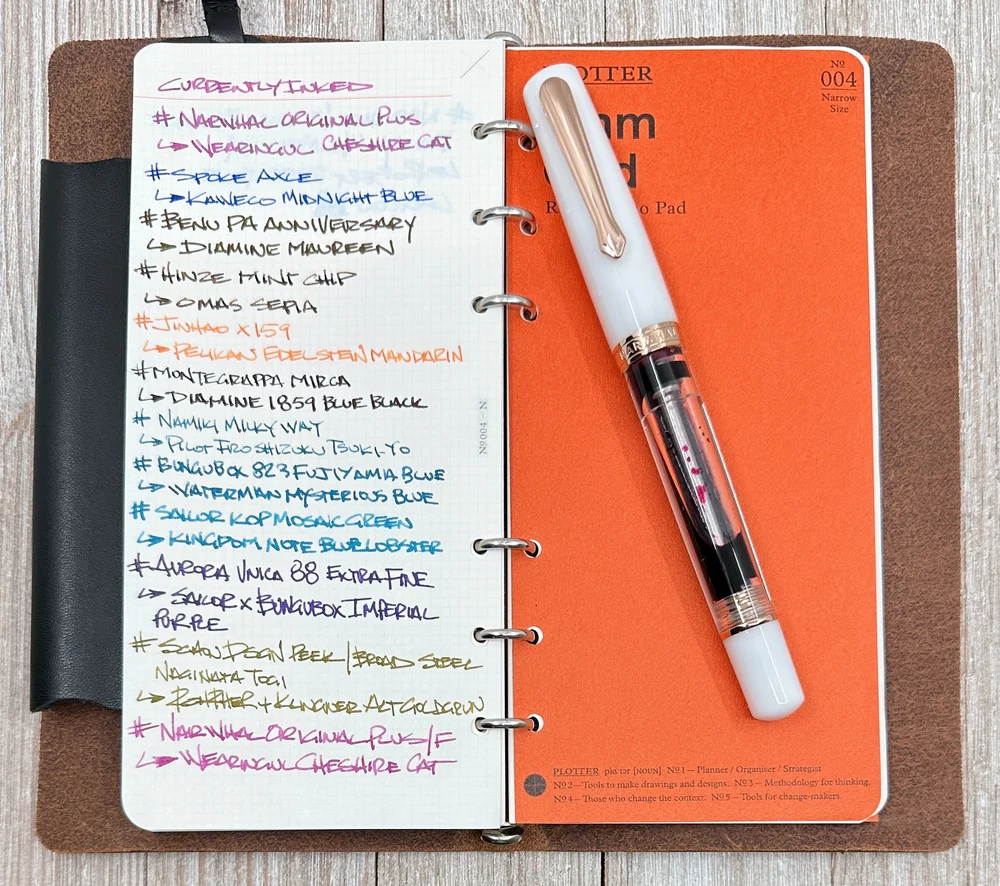 CURRENTLY INKED
# NARWHAL ORIGINAL PLUS
↳ WEARINGUL CHESHIRE CAT
# SPOKE AXLE
↳ KAWECO MIDNIGHT BLUE
# BENU PA ANNIVERSARY
↳ DIAMINE MAUREEN
# HINZE MINT CHIP
↳ OMAS SEPIA
# JINHAO X159
↳ PELIKAN EDELSTEIN MANDARIN
# MONTEGRAPPA MIRCA
↳ DIAMINE 1859 BLUE BLACK
# NAMIKI MILKY WAY
↳ PILOT IROSHIZUKU TSUKI-YO
# BUNGUBOX 823 FUJIYAMA BLUE
↳ WATERMAN MYSTERIOUS BLUE
# SAILOR KOP MOSAIC GREEN
↳ KINGDOM NOTE BLUE LOBSTER
# AURORA UNICA 88 EXTRA FINE
↳ SAILOR X BUNGUBOX IMPERIAL
PURPLE
# SCHON DSGN PEEK / BROAD STEEL
NAGINATA TOGI
↳ ROHRER + KLINGNER ALT GOLDGRUN
# NARWHAL ORIGINAL PLUS/F
↳ WEARINGUL CHESHIRE CAT
Nº004-N
OTTER
Nº
004
Narrow
Size
mm
d
R o Pad
PLOTTER plo·tər [NOUN] Nº1—Planner / Organiser / Strategist
Nº2—Tools to make drawings and designs. Nº3—Methodology for thinking.
Nº4—Those who change the context. Nº5—Tools for change-makers.